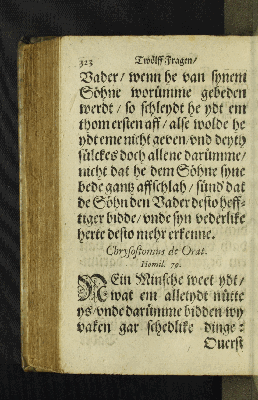 323 Twölff Fragen/
Vader/ wenn he van synem
Söhne worümme gebeden
werdt/ so schleydt he ydt em
thom ersten aff/ alse wolde he
ydt eme nicht geven/ vnd deyth
sülckes doch allene darümme/
nicht dat he dem Söhne syne
bede gantz affschlah/ sünd dat
de Söhn den Vader desto heff-
tiger bidde/ vnde syn vederlike
herte desto mehr erkenne.
Chrysostomus de Orat.
Homil. 79.
NEin Minsche weet ydt/
wat em alletydt nütte
ys/ vnde darümme bidden wy
vaken gar schedlike dinge:
Ouerst